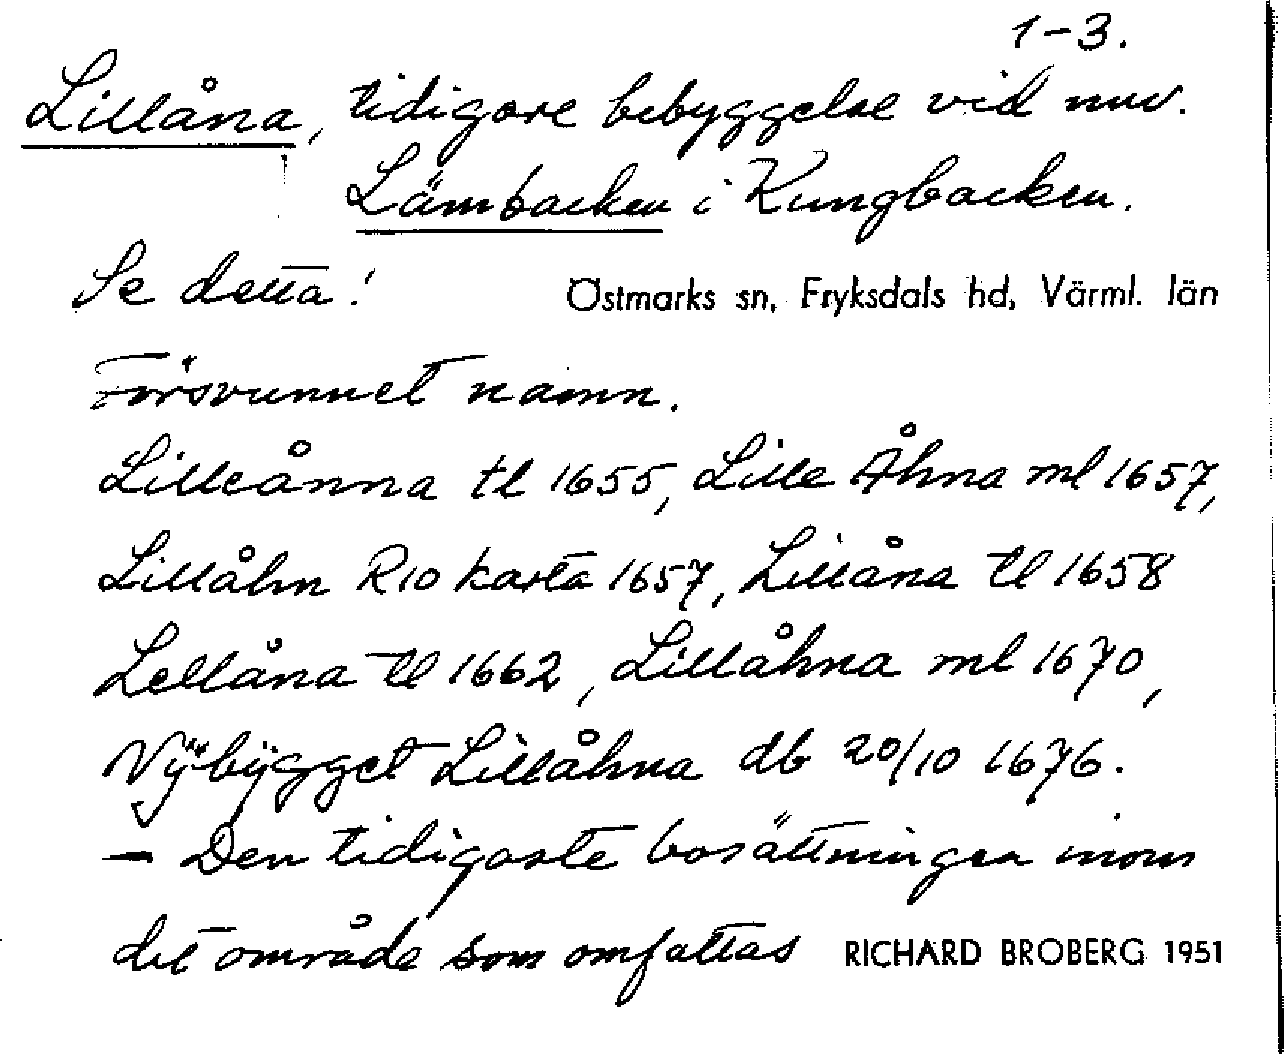 1-3.
Lillåna, tidigare bebyggelse vid nuv.
Lämbacken i Kungbacken.
Se detta!
Östmarks sn, Fryksdals hd, Värml. län
Försvunnet namn.
Lilleånna tl 1655, Lille Åhna ml 1657,
Lillåhn R10 karta 1657, Lillåna tl 1658
Lellåna tl 1662, Lillåhna ml 1670,
Nÿbÿgget Lillåhna db 20/10 1676.
- Den tidigaste bosättningen inom
det område som omfattas
RICHARD BROBERG 1951